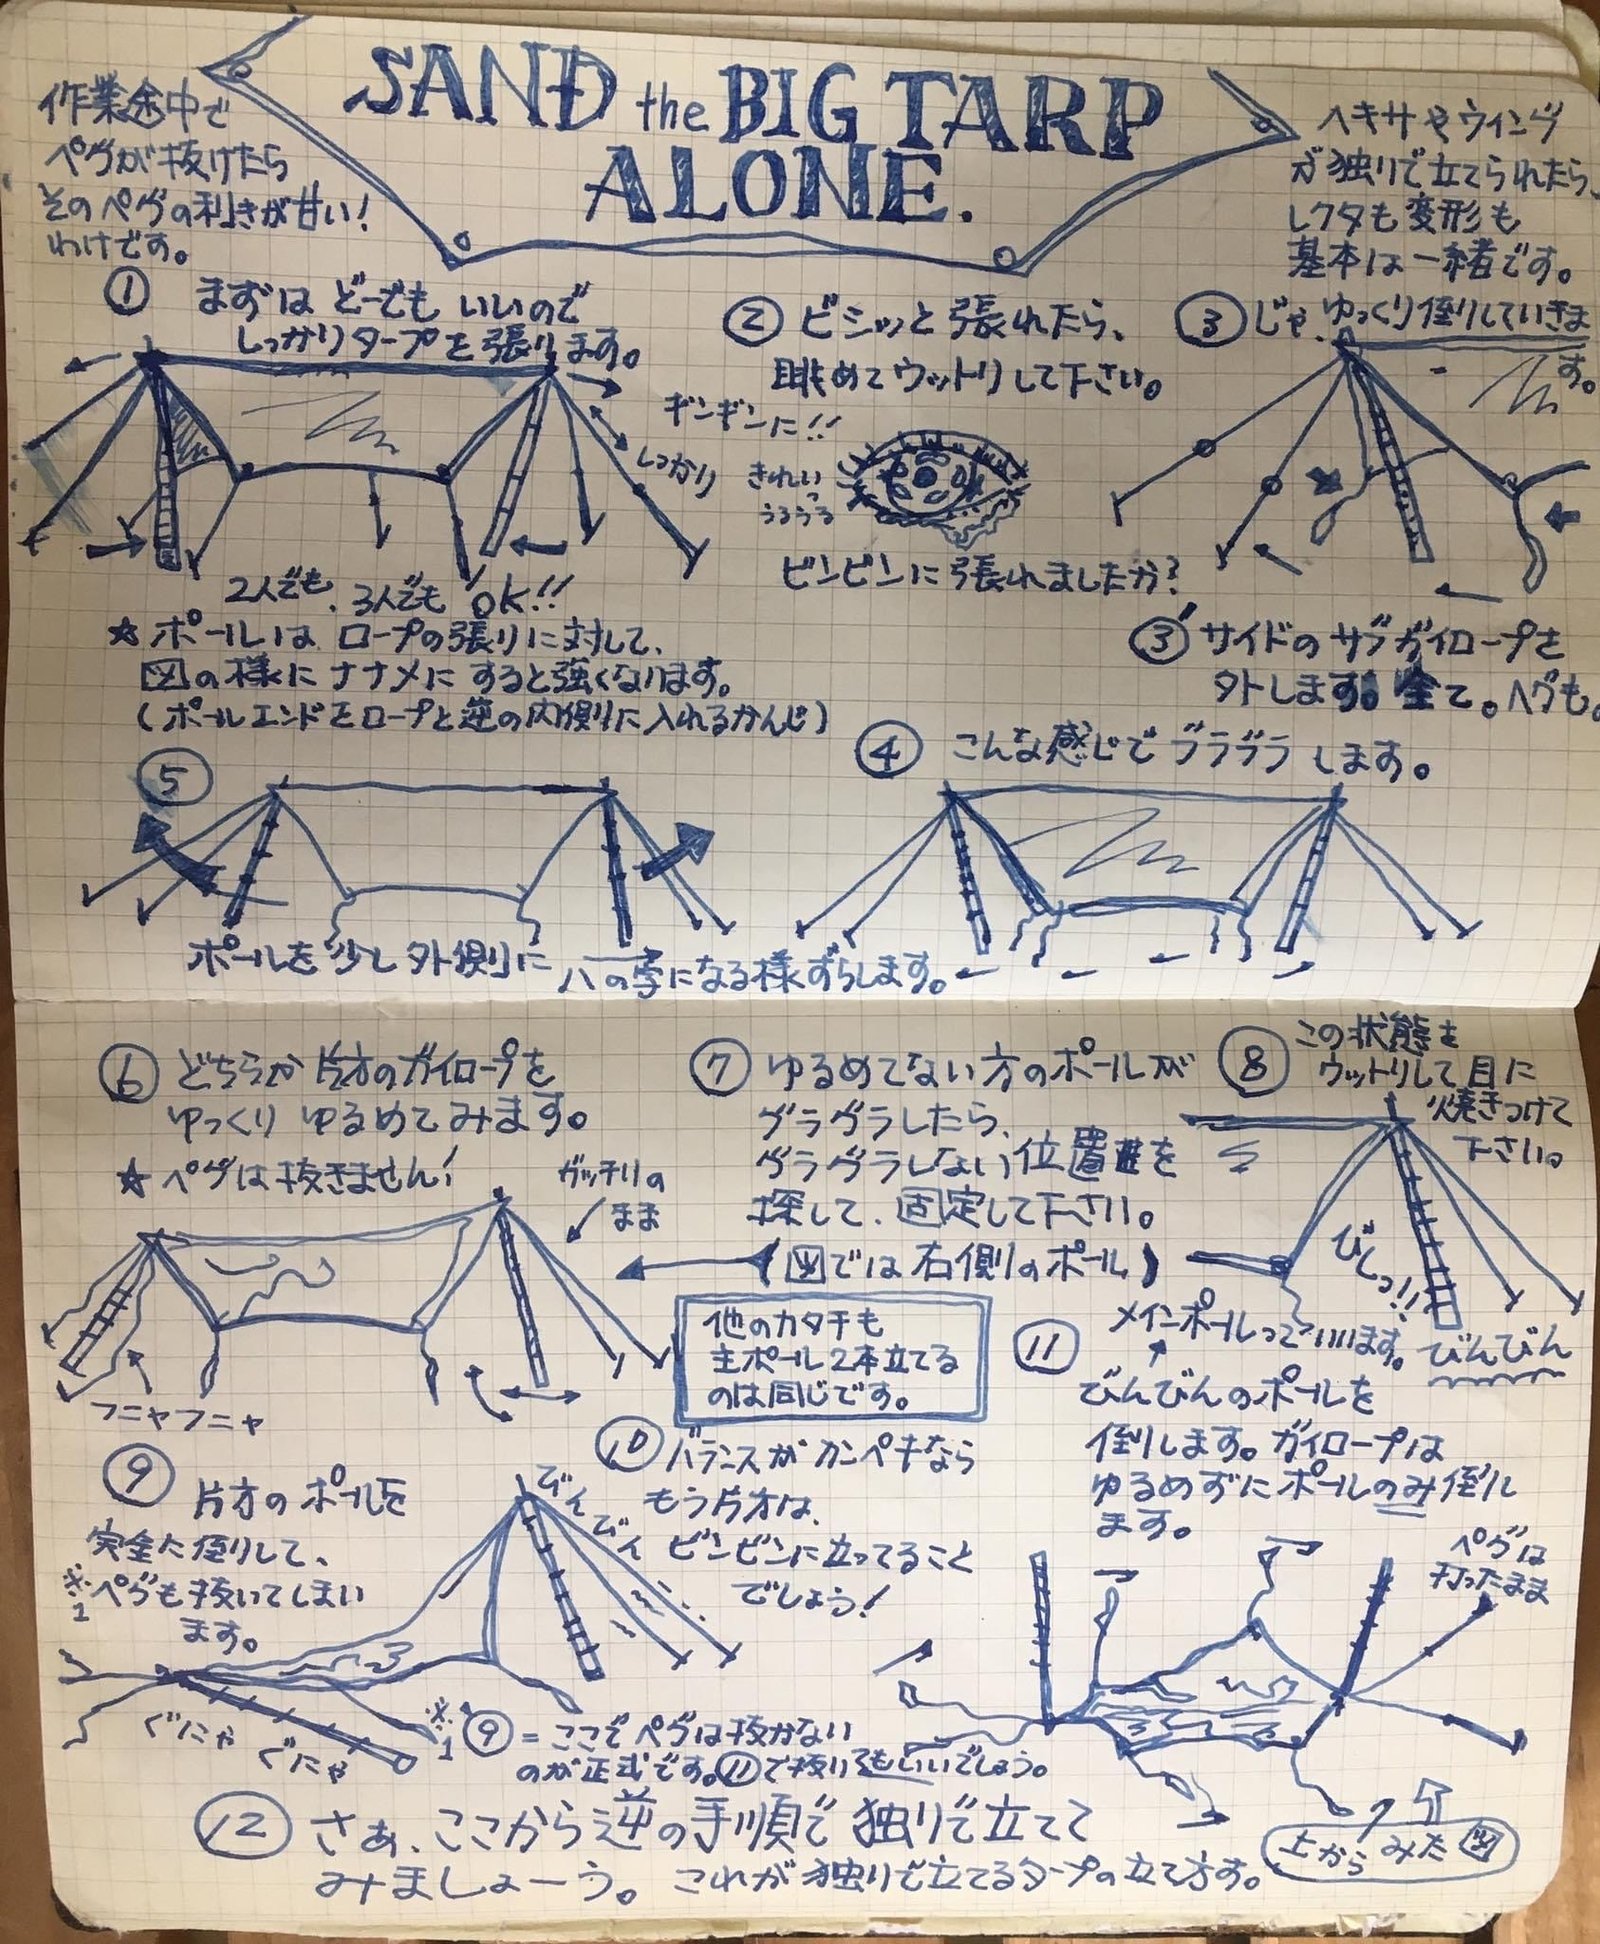 SAND the BIG TARP
ALONE.
作業途中で
ペグが抜けたら
そのペグの利きが甘い!
わけです。
ヘキサやウイング
が独りで立てられたら、
レクタも変形も
基本は一緒です。
① まずは どーでも いいので
しっかりタープを張ります。
ギンギンに!!
しっかり
2人でも、3人でも OK!!
☆ ポールは ロープの張りに対して、
図の様にナナメにすると強くなります。
(ポールエンドをロープと逆の内側に入れるかんじ)
② ビシッと張れたら、
眺めてウットリして下さい。
きれいっ
うるうる
ビンビンに張れましたか?
③ じゃ、ゆっくり倒していきま
す。
③' サイドのサブガイロープを
外します。全て。ペグも。
④ こんな感じでブラブラします。
⑤
ポールを少し外側に ハの字になる様ずらします。
⑥ どちらか片方のガイロープを
ゆっくり ゆるめてみます。
☆ ペグは抜きません!
ガッチリの
まま
フニャフニャ
⑦ ゆるめてない方のポールが
グラグラしたら、
グラグラしない位置を
探して、固定して下さい。
(図では右側のポール)
他のカタチも
主ポール2本立てる
のは同じです。
⑧ この状態を
ウットリして目に
焼きつけて
下さい。
びしっ!!
びんびん
⑨ 片方のポールを
完全に倒して、
※1 ペグも抜いてしまい
ます。
ぐにゃ
ぐにゃ
※1 ⑨'=ここでペグは抜かない
のが正式です。⑪で抜いてもいいでしょう。
⑩ バランスがカンペキなら
もう片方は、
ビンビンに立ってること
でしょう!
びィ
びィ
⑪ メインポールっていいます。
びんびんのポールを
倒します。ガイロープは
ゆるめずにポールのみ倒し
ます。
ペグは
打ったまま
上からみた図
⑫ さぁ、ここから逆の手順で独りで立てて
みましょーう。これが独りで立てるタープの立て方す。